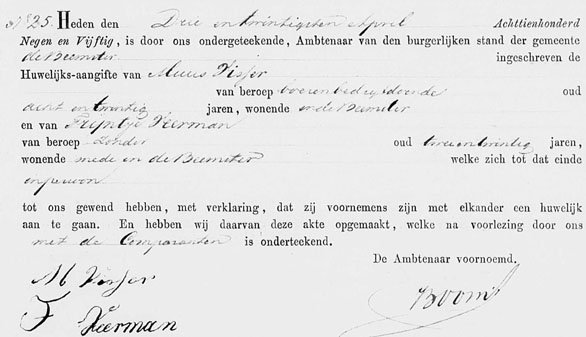 N° 25. Heden den Drie en twintigsten April Achttienhonderd
Negen en Vijftig, is door ons ondergeteekende, Ambtenaar van den burgerlijken stand der gemeente
de Beemster ingeschreven de
Huwelijks-aangifte van Muus Visser
van beroep boerenbedrijfdoende oud
acht en twintig jaren, wonende in de Beemster
en van Trijntje Veerman
van beroep Zonder oud twee en twintig jaren,
wonende mede in de Beemster welke zich tot dat einde
in persoon
tot ons gewend hebben, met verklaring, dat zij voornemens zijn met elkander een huwelijk
aan te gaan. En hebben wij daarvan deze akte opgemaakt, welke na voorlezing door ons
met de Comparanten is onderteekend.
De Ambtenaar voornoemd.
M Visser
T Veerman